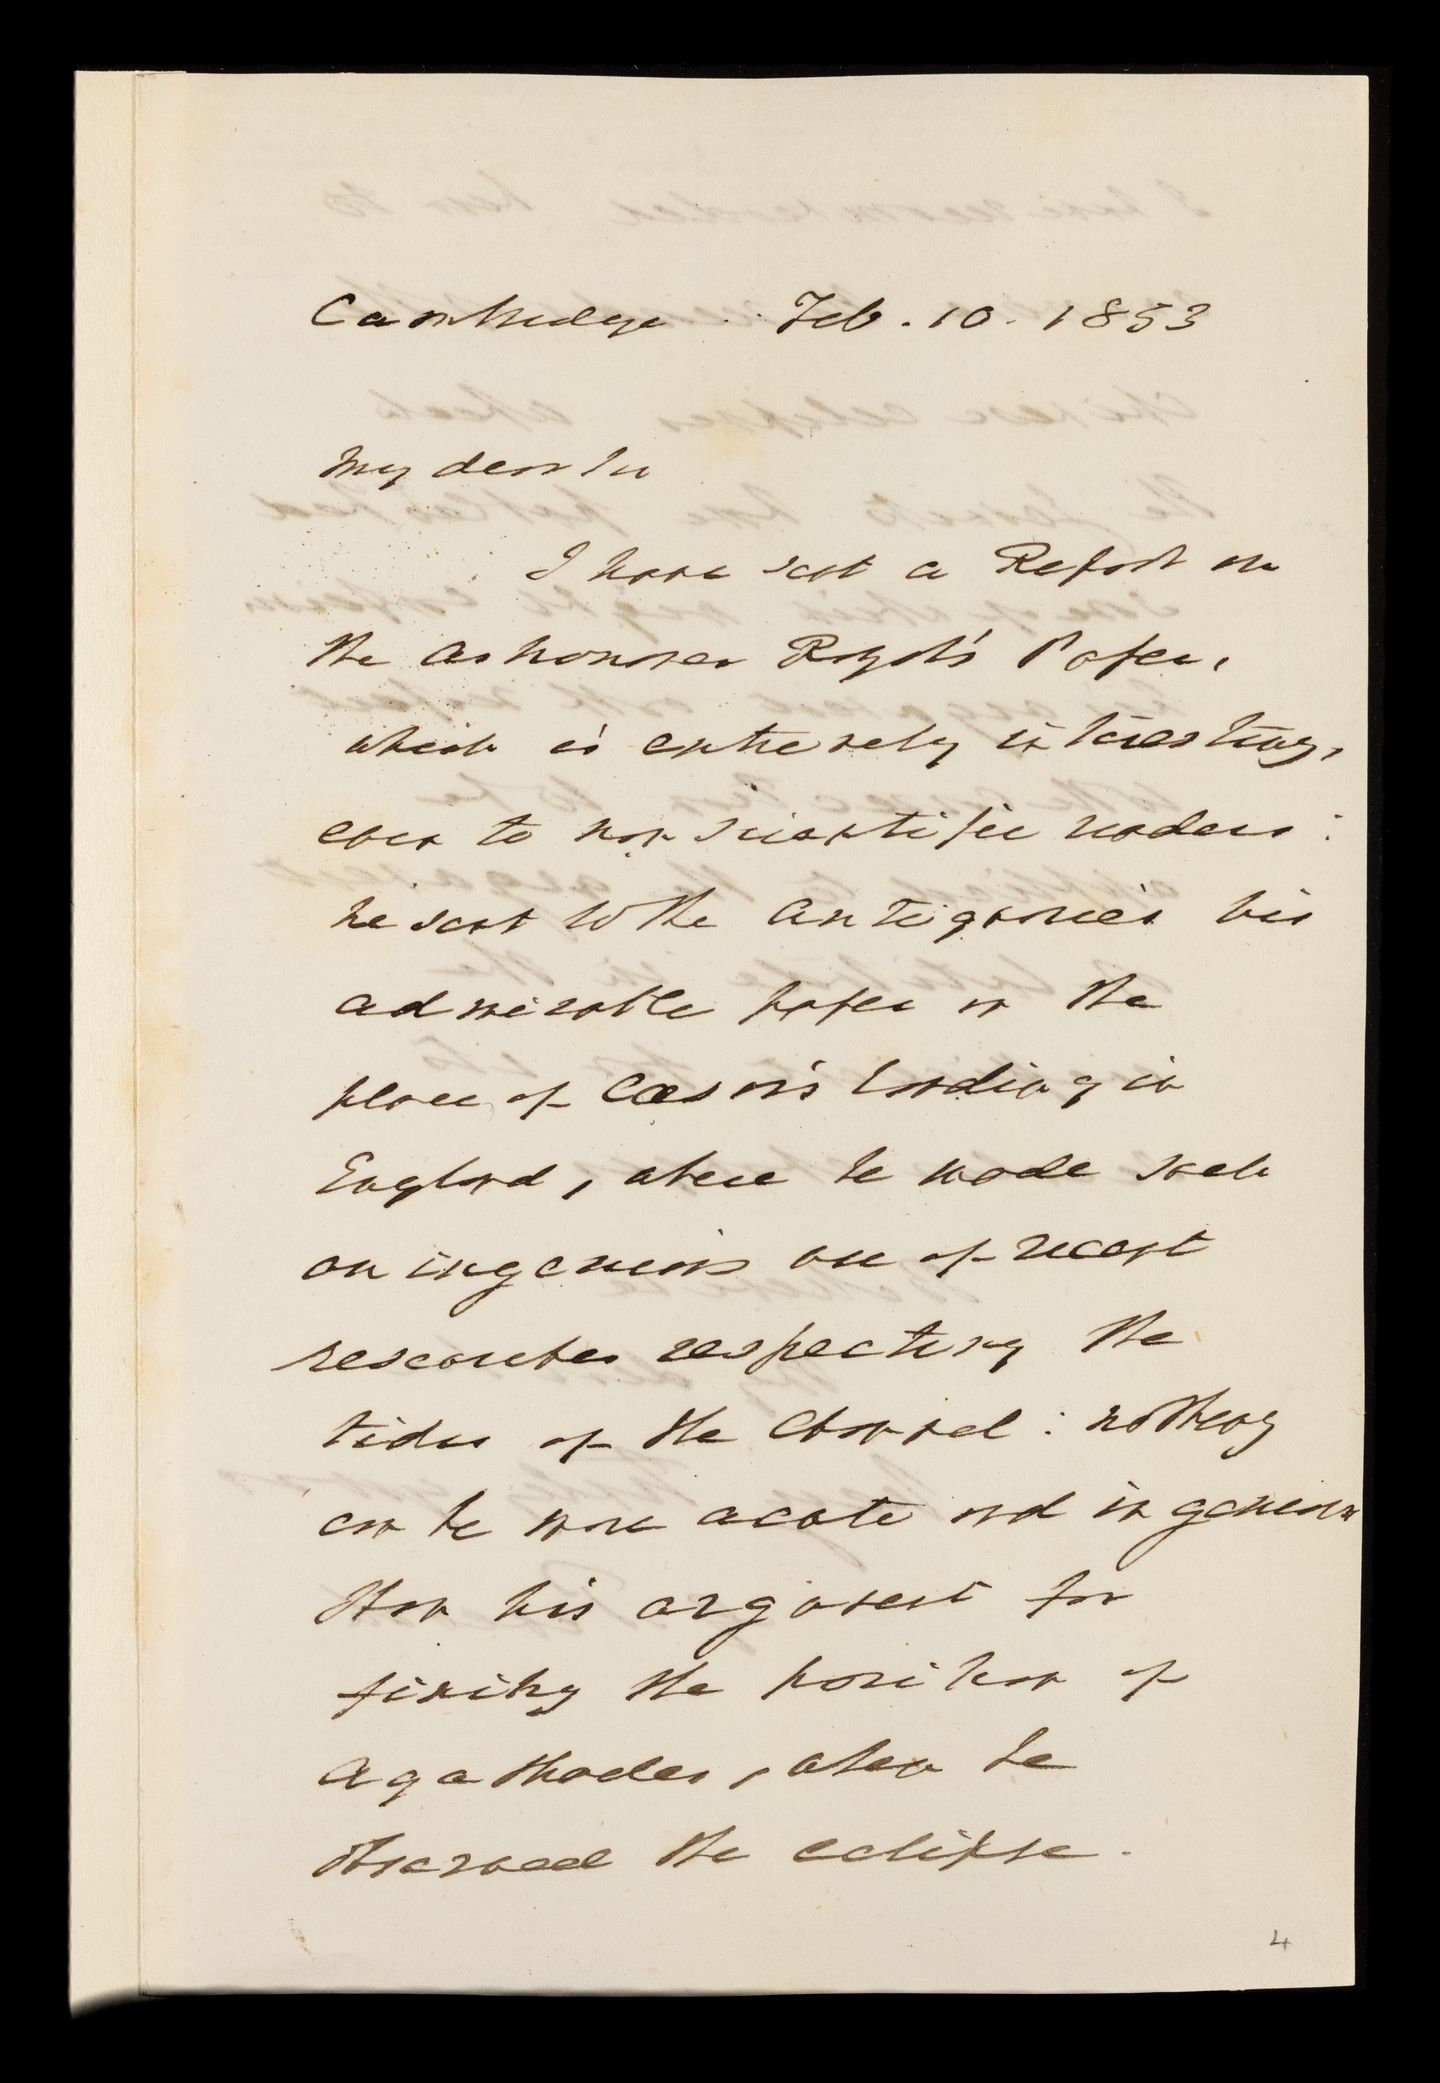 Cambridge Feb. 10. 1853
My dear Sir
I have sent a Report on
the Astronomer Royal's Paper,
which is extremely interesting,
even to non scientific readers:
he sent to the Antiquaries his
admirable paper on the
place of Cæsar's landing in
England, where he made such
an ingenious use of recent
researches respecting the
tides of the Channel: nothing
can be more acute and ingenious
than his argument for
fixing the position of
Agathocles, when he
observed the eclipse.
4